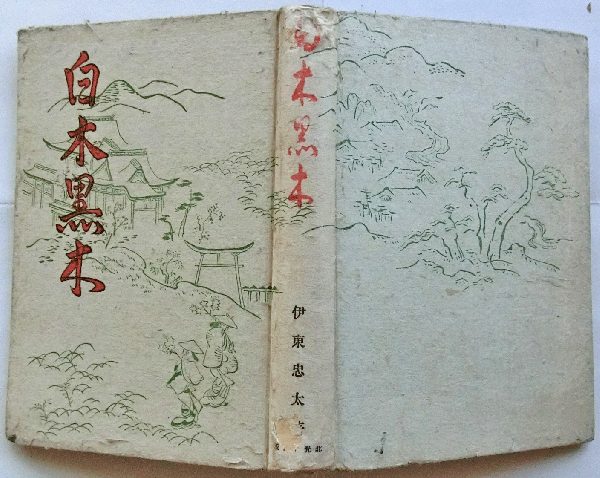 白木黒木
白木黒木
伊東忠太
北光